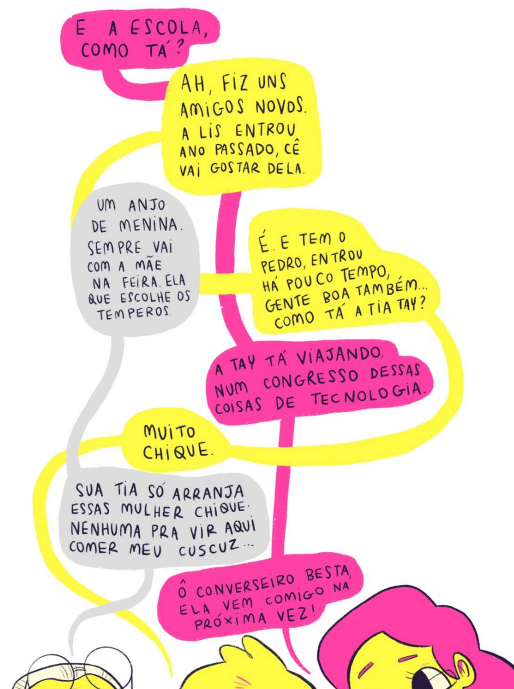 E A ESCOLA,
COMO TÁ?
AH, FIZ UNS
AMIGOS NOVOS.
A LIS ENTROU
ANO PASSADO, CÊ
VAI GOSTAR DELA.
UM ANJO
DE MENINA.
SEMPRE VAI
COM A MÃE
NA FEIRA. ELA
QUE ESCOLHE OS
TEMPEROS.
É. E TEM O
PEDRO, ENTROU
HÁ POUCO TEMPO,
GENTE BOA TAMBÉM...
COMO TÁ A TIA TAY?
A TAY TÁ VIAJANDO.
NUM CONGRESSO DESSAS
COISAS DE TECNOLOGIA.
MUITO
CHIQUE.
SUA TIA SÓ ARRANJA
ESSAS MULHER CHIQUE.
NENHUMA PRA VIR AQUI
COMER MEU CUSCUZ...
Ô CONVERSEIRO BESTA,
ELA VEM COMIGO NA
PRÓXIMA VEZ!